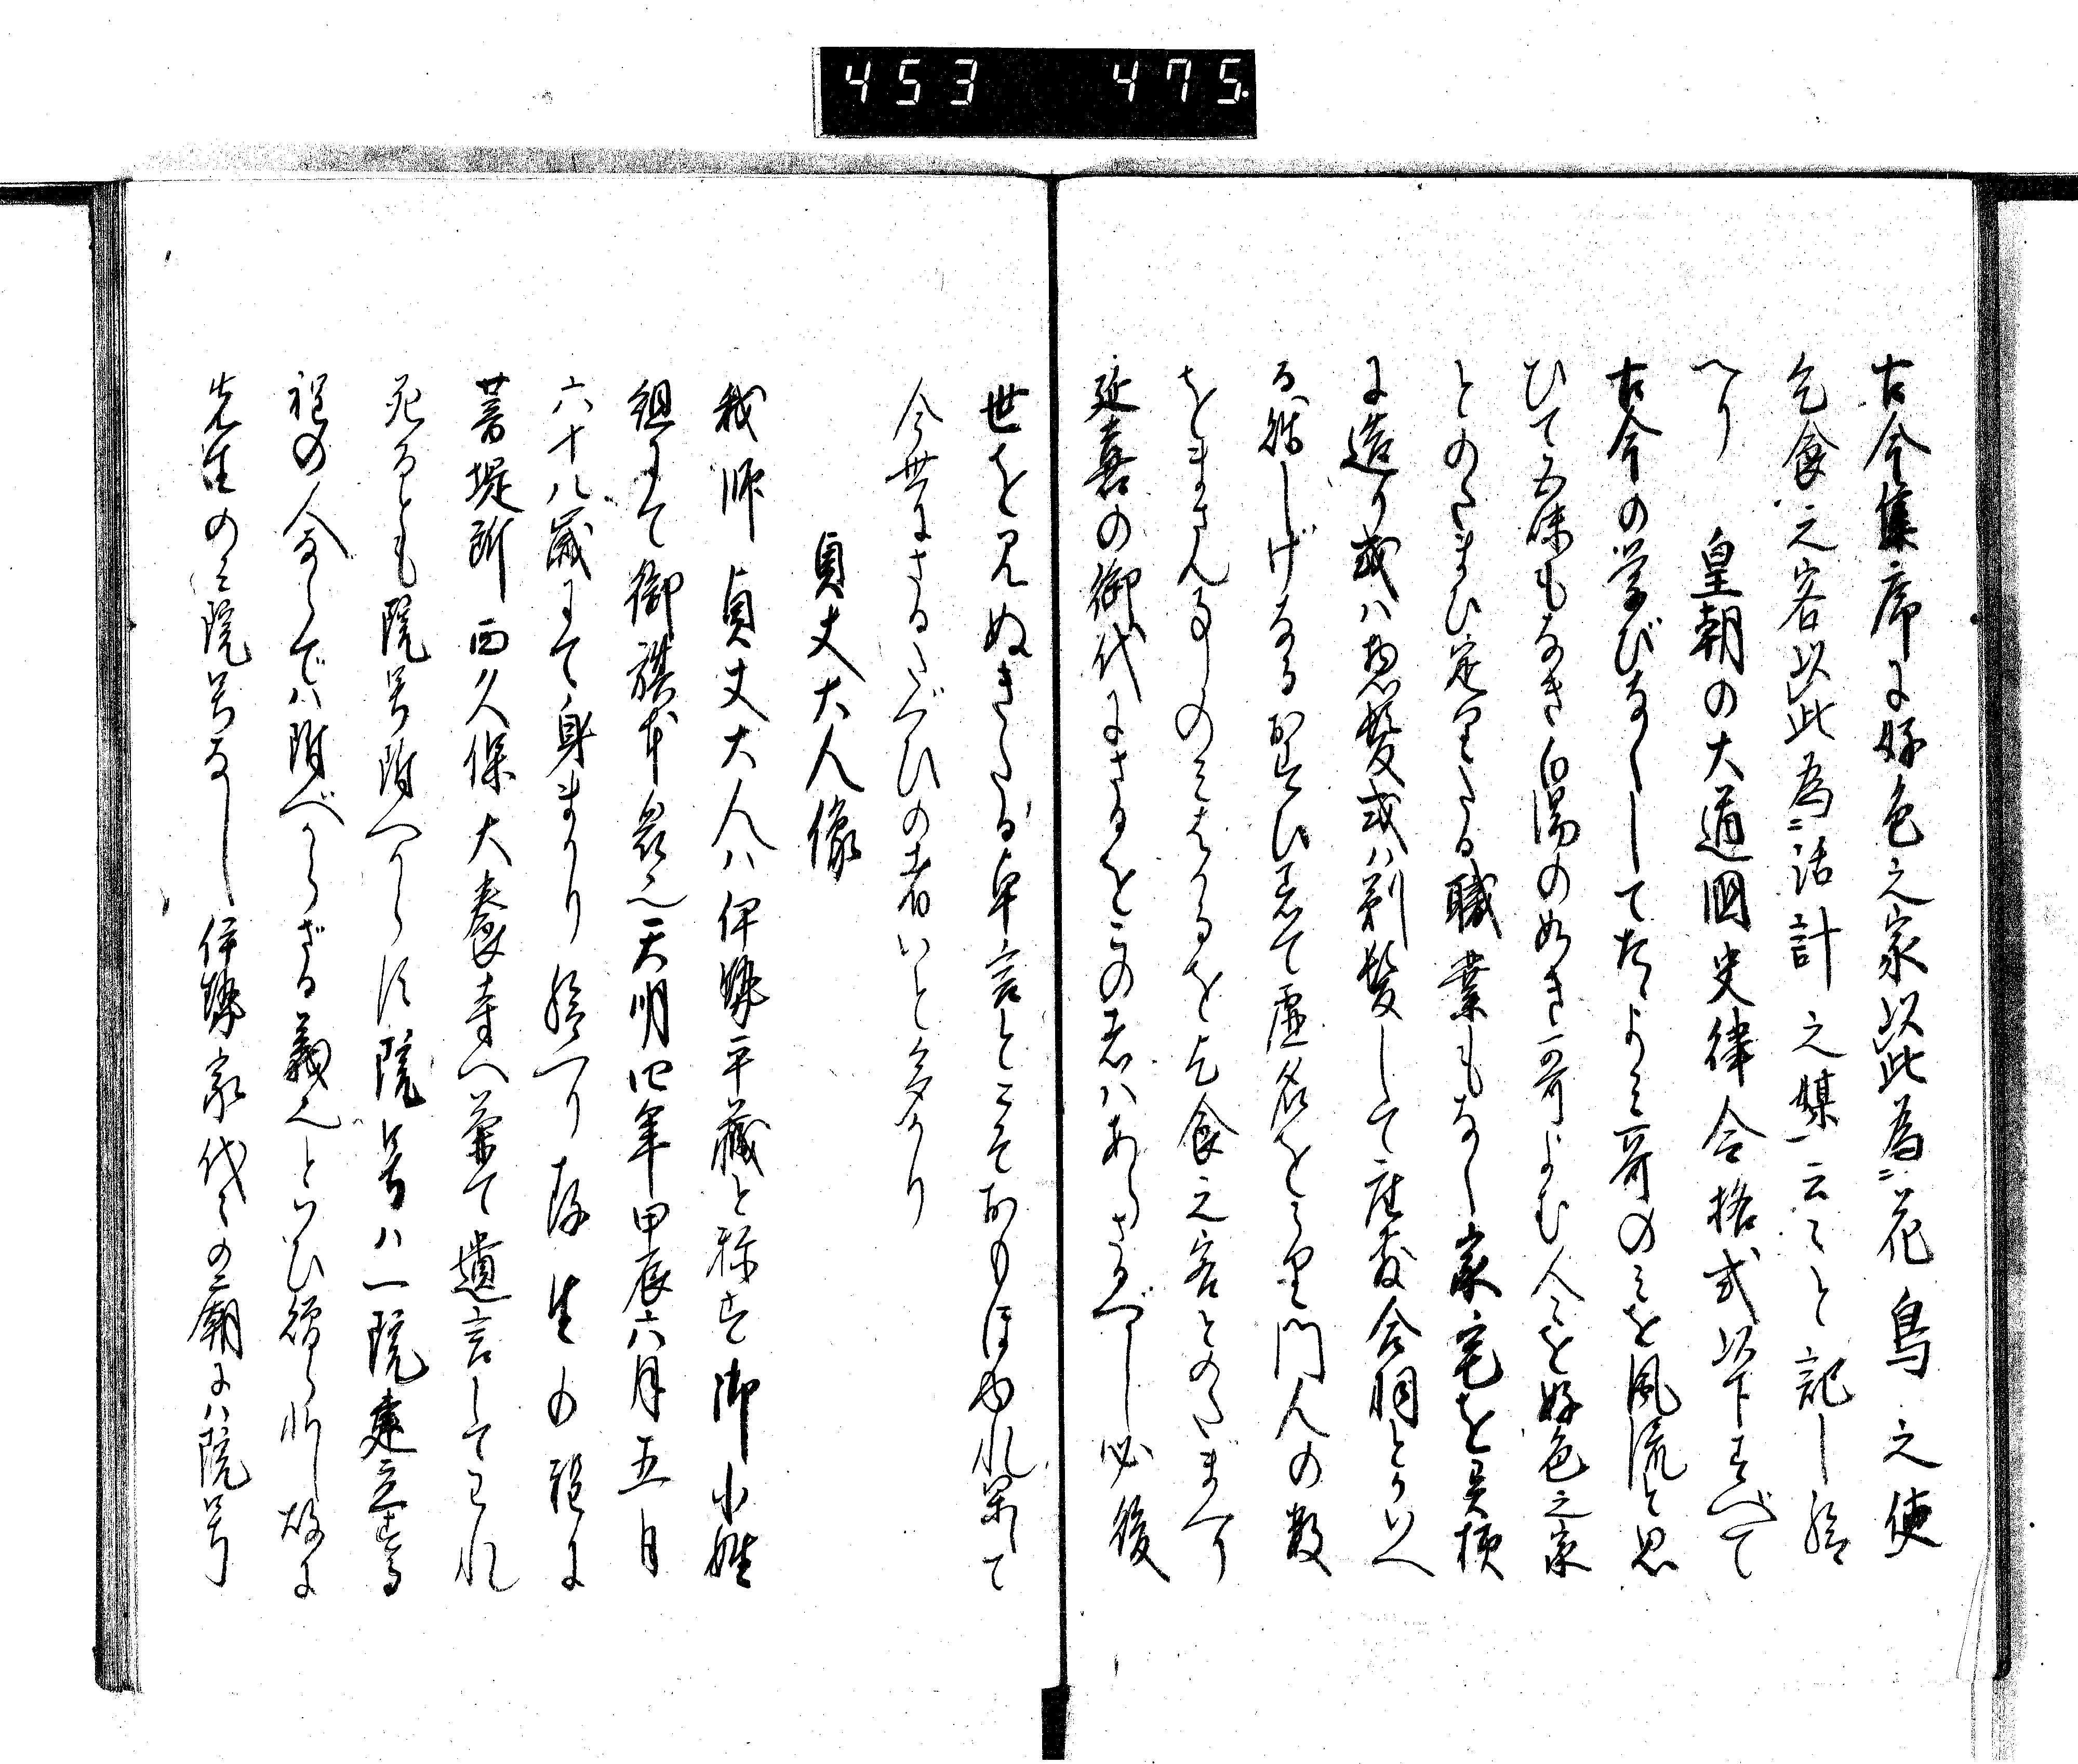 453 475
古今集序に好色之家以此為ニ花鳥之使
乞食之客以此為ニ活計之媒一云々と記し給
へり 皇朝の大道国史律令格式以下すべて
古今の学びなくしてたゞよミ哥のミを風流と思
ひて五味もなき白湯の如き哥よむ人々を好色之家
とのたまひ定りたる職業もなく家宅を
に造り或ハ惣髪或ハ剃髪して座敷合羽とかいへ
る 虚名をとり門人の数
をまさん事のミはかるを乞食之客とのたまへり
延喜の御代にさるをこの者ハあらざるべし必後
世を見ぬきたる卓言とこそおもほゆれ果して
今世にさるたぐひの者いと多かり
貞丈大人像
我師貞丈大人ハ伊勢平蔵と称す御小姓
組にて御旗本衆也天明四年甲辰六月五日
六十八歳にて身まかり給へり存生の程に
菩提所西久保大養寺へ兼て遺言してわれ
死るとも院号附へからす院号ハ一院建立する
程の人ならでハ附べからざる義也といひ贈られし故に
先生のミ院号なし伊勢家代々の廟にハ院号